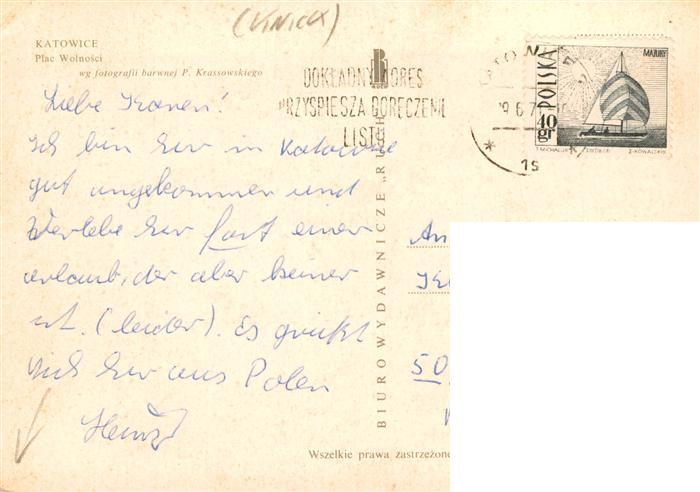 KATOWICE
Plac Wolności
wg fotografii barwnej P. Krassowskiego
DOKŁADNY ADRES
PRZYSPIESZA DORĘCZENIE
LISTU
19.6.7
1s
MAZURY
POLSKA
40 gr
T. MICHALUK
Z. KOWALSKI
Liebe
Ich bin hier in Katowice
gut angekommen und
hier fast einen
urlaub, der aber keiner
ist. (leider). Es grüßt
Dich hier aus Polen
Heinz
BIURO WYDAWNICZE „RUCH
An
50
Wszelkie prawa zastrzeżone